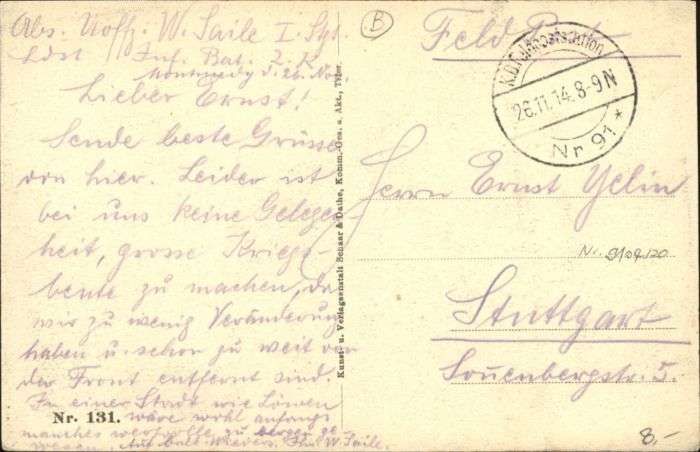 Abs. Uoffz. W. Saile I
Ldst. Inf. Bat. Z. K.
Montmedy d. 26. Nov.
Lieber Ernst!
Sende beste Grüsse
von hier. Leider ist
bei uns keine Gelegen
heit, grosse Kriegs-
beute zu machen, da
wir zu wenig Veränderung
haben u. schon zu weit von
der Front entfernt sind.
In einer Stadt wie Löwen
wäre wohl anfangs
manches wertvolle zu bergen ge
wesen. Auf bald. Wieders. W. Saile.
Nr. 131.
Kunst- u. Verlagsanstalt Schaar & Dathe, Komm.-Ges. a. Akt., Trier.
B
Feld
K.D. Feldpoststation
26.11.14. 8-9 N
Nr 91 *
Herrn Ernst Yelin
Stuttgart
Sonnenbergstr. 5.
8,-